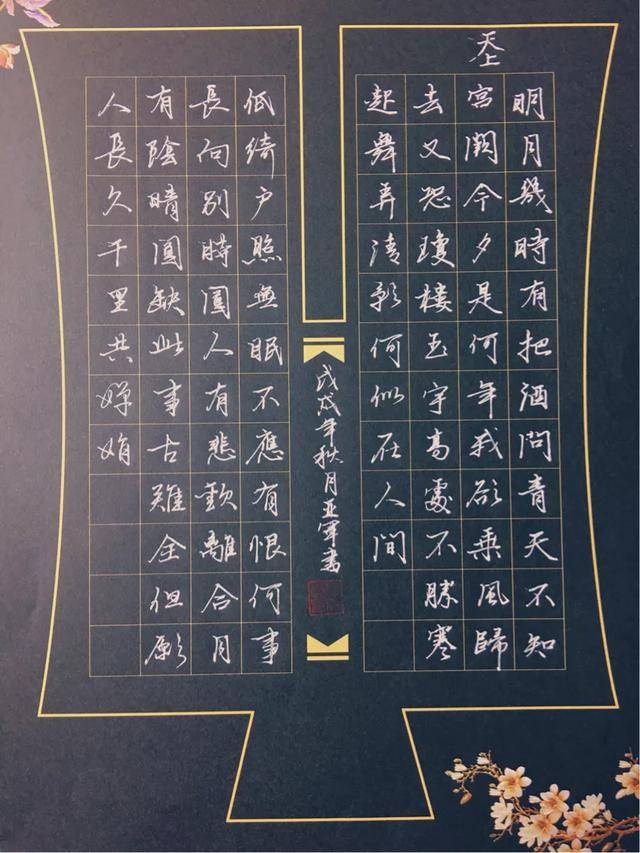 明月幾時有把酒問青天不知
天上
宮闕今夕是何年我欲乘風歸
去又恐瓊樓玉宇高處不勝寒
起舞弄清影何似在人間
低綺戶照無眠不應有恨何事
長向別時圓人有悲歡離合月
有陰晴圓缺此事古難全但願
人長久千里共嬋娟
戊戌年秋月亚軍書